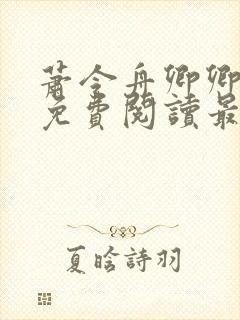 蕭令舟卿卿
免費閱讀最
夏晗詩羽